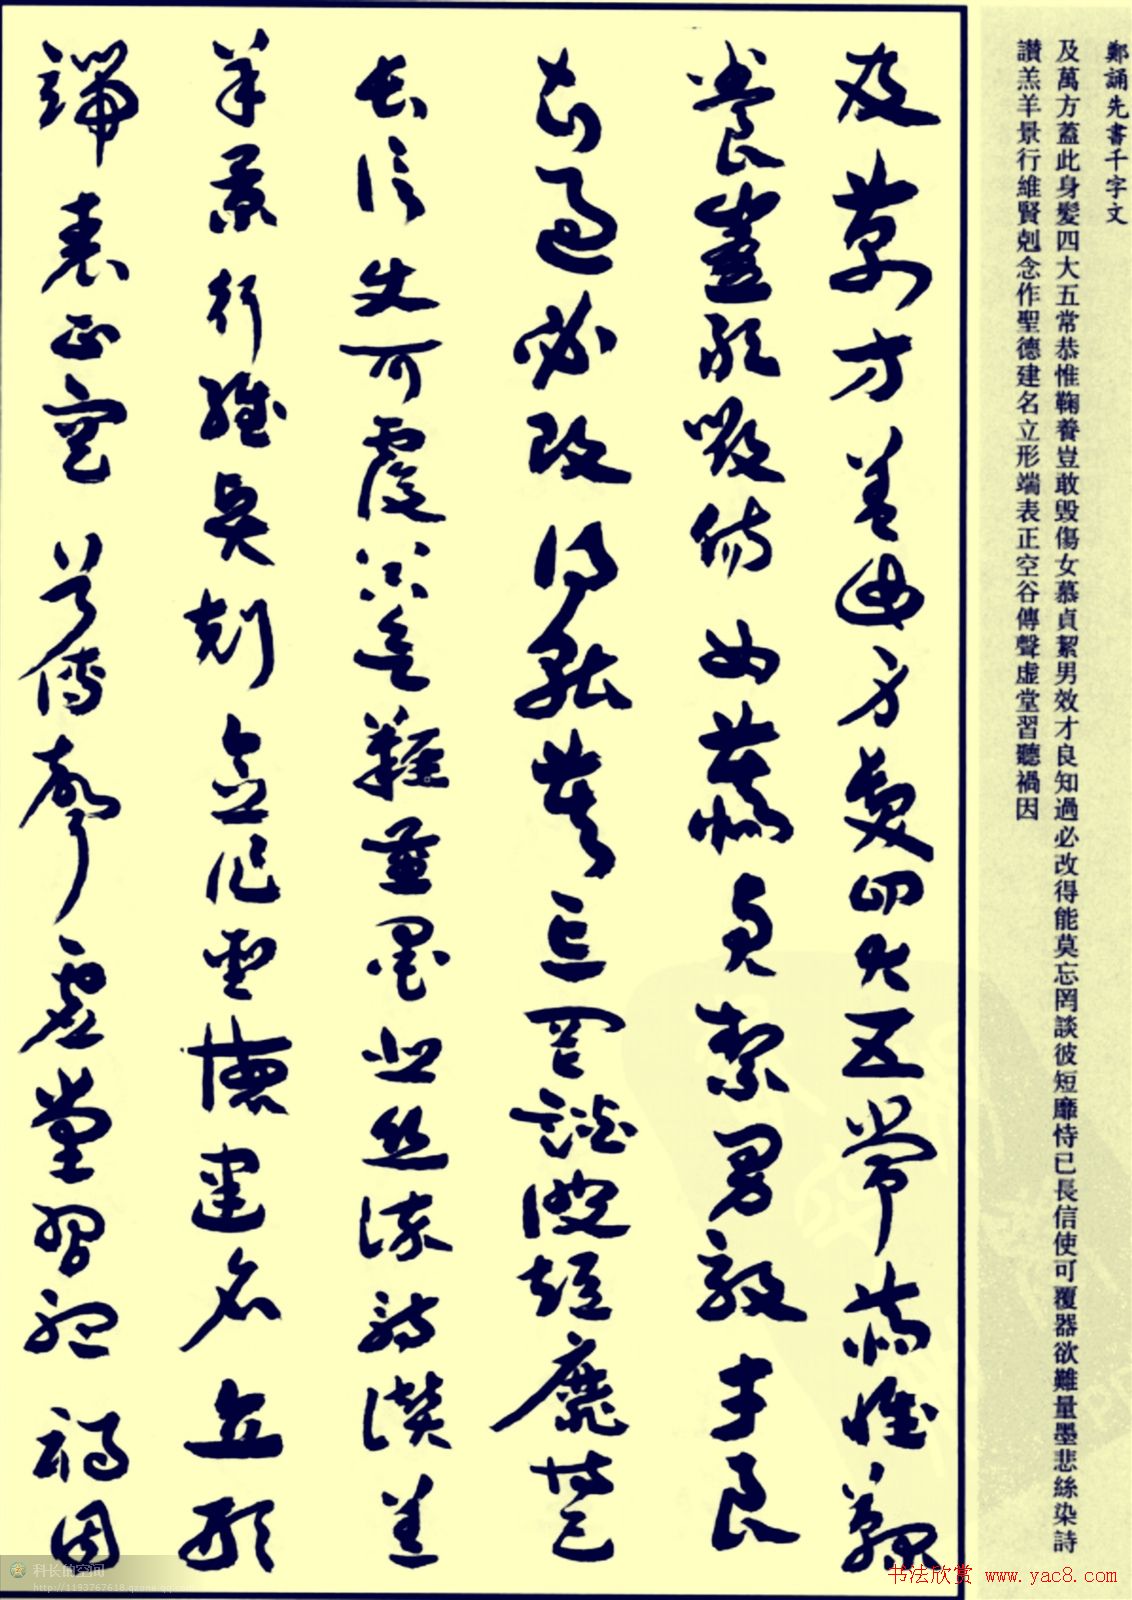 鄭誦先書千字文
及萬方蓋此身髮四大五常恭惟鞠養豈敢毀傷女慕貞絜男效才良知過必改得能莫忘罔談彼短靡恃已長信使可覆器欲難量墨悲絲染詩
讃羔羊景行維賢剋念作聖德建名立形端表正空谷傳聲虛堂習聽禍因
及萬方蓋此身髮四大五常恭惟鞠
養豈敢毀傷女慕貞絜男效才良
知過必改得能莫忘罔談彼短靡恃已
長信使可覆器欲難量墨悲絲染詩讃羔
羊景行維賢剋念作聖德建名立形
端表正空谷傳聲虛堂習聽禍因
科长的空间
http://1193767618.qzone.qq.com
书法欣赏 www.yac8.com